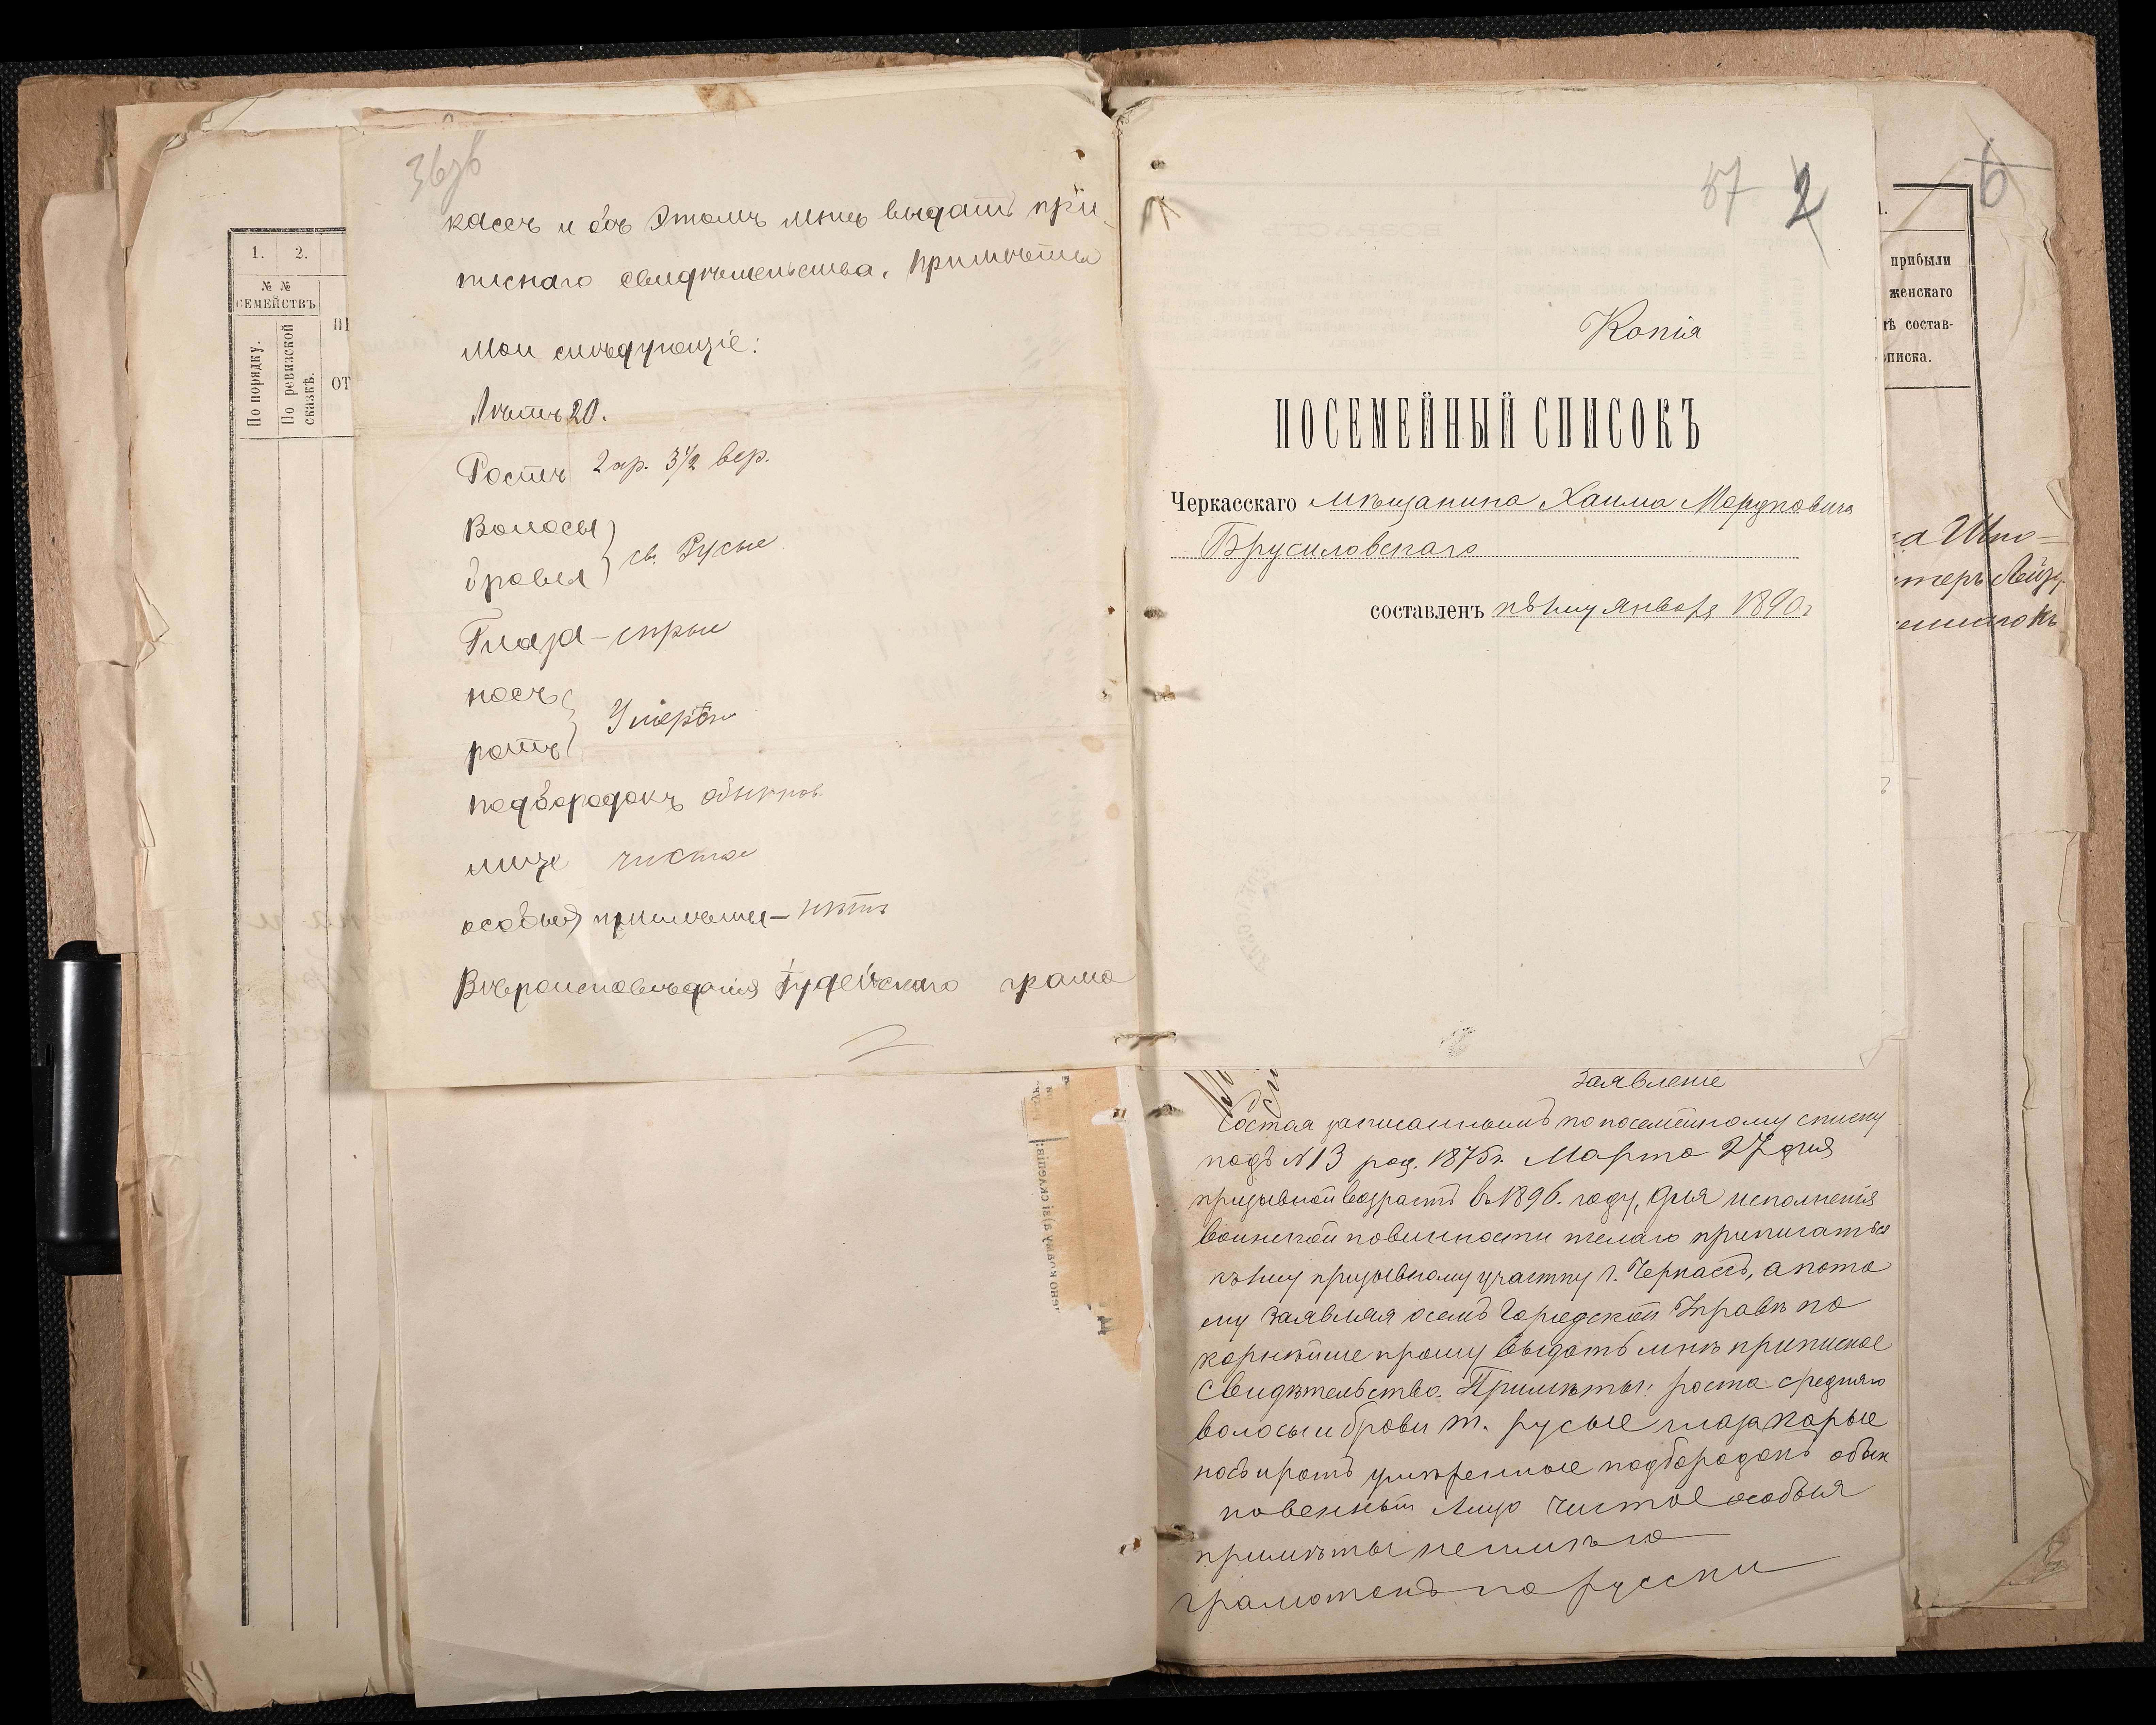 36зв
кассъ и объ Этомъ мнѣ выдать при-
писнаго свидѣтельства. Примѣты
Мои слѣдующіе:
Лѣтъ 20.
Ростъ 2 ар. 3½ вер.
Волосы
брови
св. Русые
Глаза - сѣрые
носъ
ротъ
Умѣрен
подбородокъ обыкнов.
лице чистое
особыя примѣты - нѣтъ
Вѣроисповѣданія Іудейскаго грамо
1. 2.
№ №
СЕМЕЙСТВЪ
По порядку.
По ревизской сказкѣ.
ОТ
37 2
Копія
ПОСЕМЕЙНЫЙ СПИСОКЪ
Черкасскаго мѣщанина Хаима Мордковича
Брусиловскаго
составленъ къ 1му января 1890 г
Заявленіе
Состоя записаннымъ по посемейному списку
подъ №13 род. 1875 г. Марта 27 дня
призывной возрастъ въ 1896. году, для исполненія
воинской повинности желаю приписаться
къ 1му призывному участку г. Черкассъ, а пото
му Заявляя о семъ Городской Управѣ по
корнѣйше прошу выдать мнѣ приписное
свидѣтельство. Примѣты: роста средняго
волосы и брови т. русые глаза карые
носъ и ротъ умѣренные подбородокъ обык
новенный Лицо чистое особыя
примѣты не имѣю
грамотенъ по русски
6
прибыли
женскаго
ѣ состав-
писка.